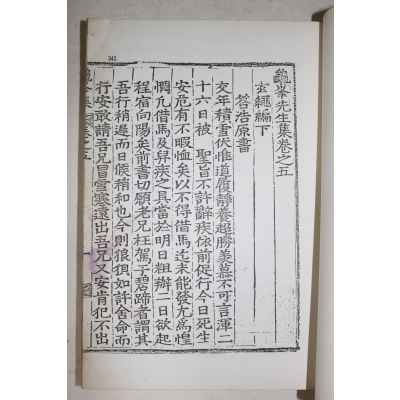 345
龜峯先生集卷之五
玄繩編下
答浩原書
交年積雪伏惟道履靜養超勝羡慕不可言渾二
十六日被 聖旨不許辭疾依前促行今日死生
安危有不暇恤矣以不得借馬迄未能發尤爲惶
惘凡借馬及舁疾之具當於明日粗辦二日欲起
程宿向陽矣前書切願老兄枉駕于碧蹄者謂其
吾行稍遲而日候稍和也今則狼狽如許舍命而
行安敢請吾兄冒雪寒遠出吾兄又安肯犯不出